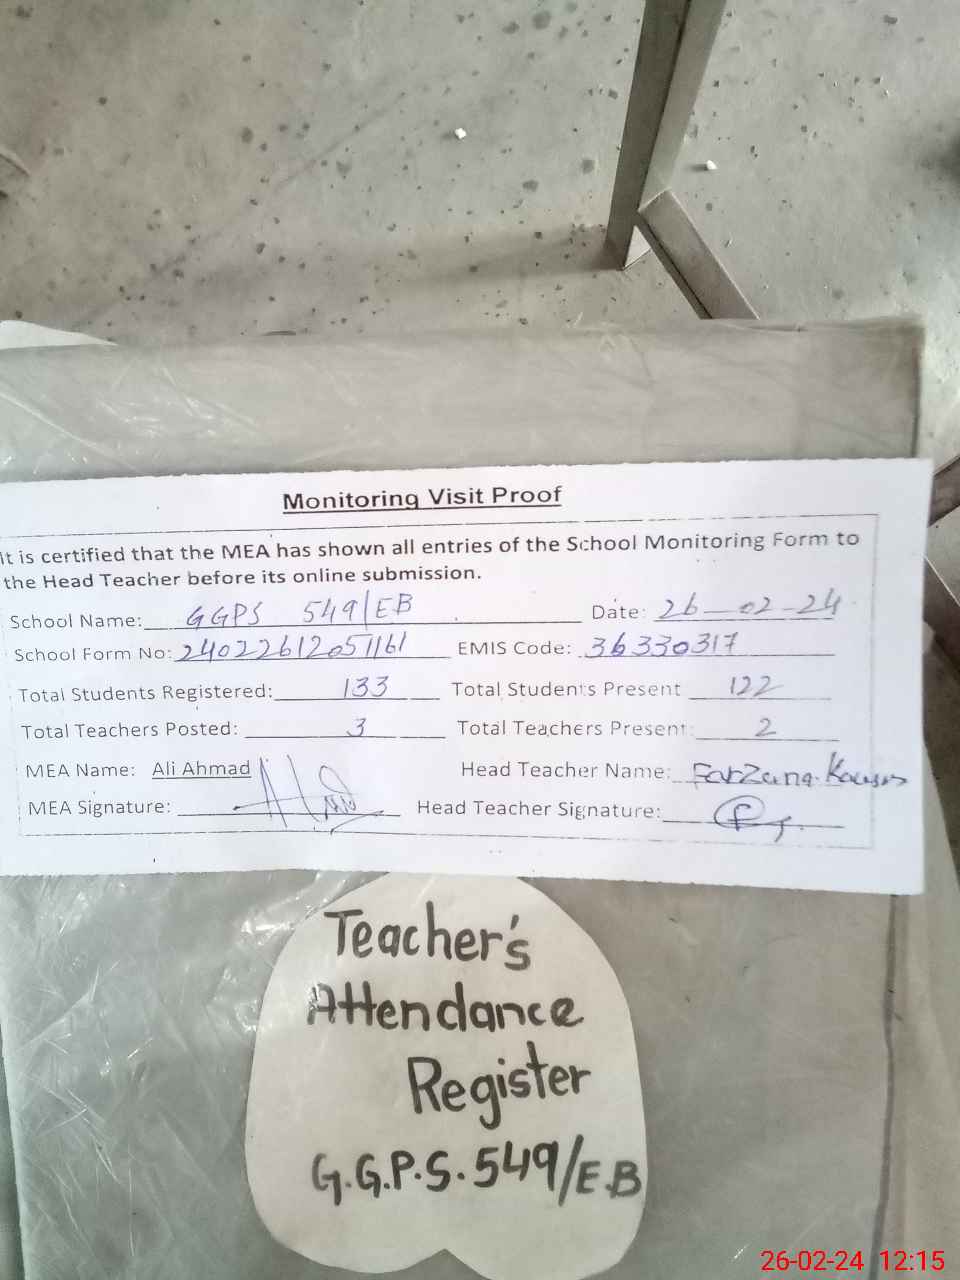 Monitoring Visit Proof
It is certified that the MEA has shown all entries of the School Monitoring Form to
the Head Teacher before its online submission.
School Name: GGPS 549/EB Date: 26-02-24
School Form No: 24022612051161 EMIS Code: 36330317
Total Students Registered: 133 Total Students Present 122
Total Teachers Posted: 3 Total Teachers Present: 2
MEA Name: Ali Ahmad Head Teacher Name: Farzana Kausar
MEA Signature: Head Teacher Signature:
Teacher's
Attendance
Register
G.G.P.S.549/E.B
26-02-24 12:15